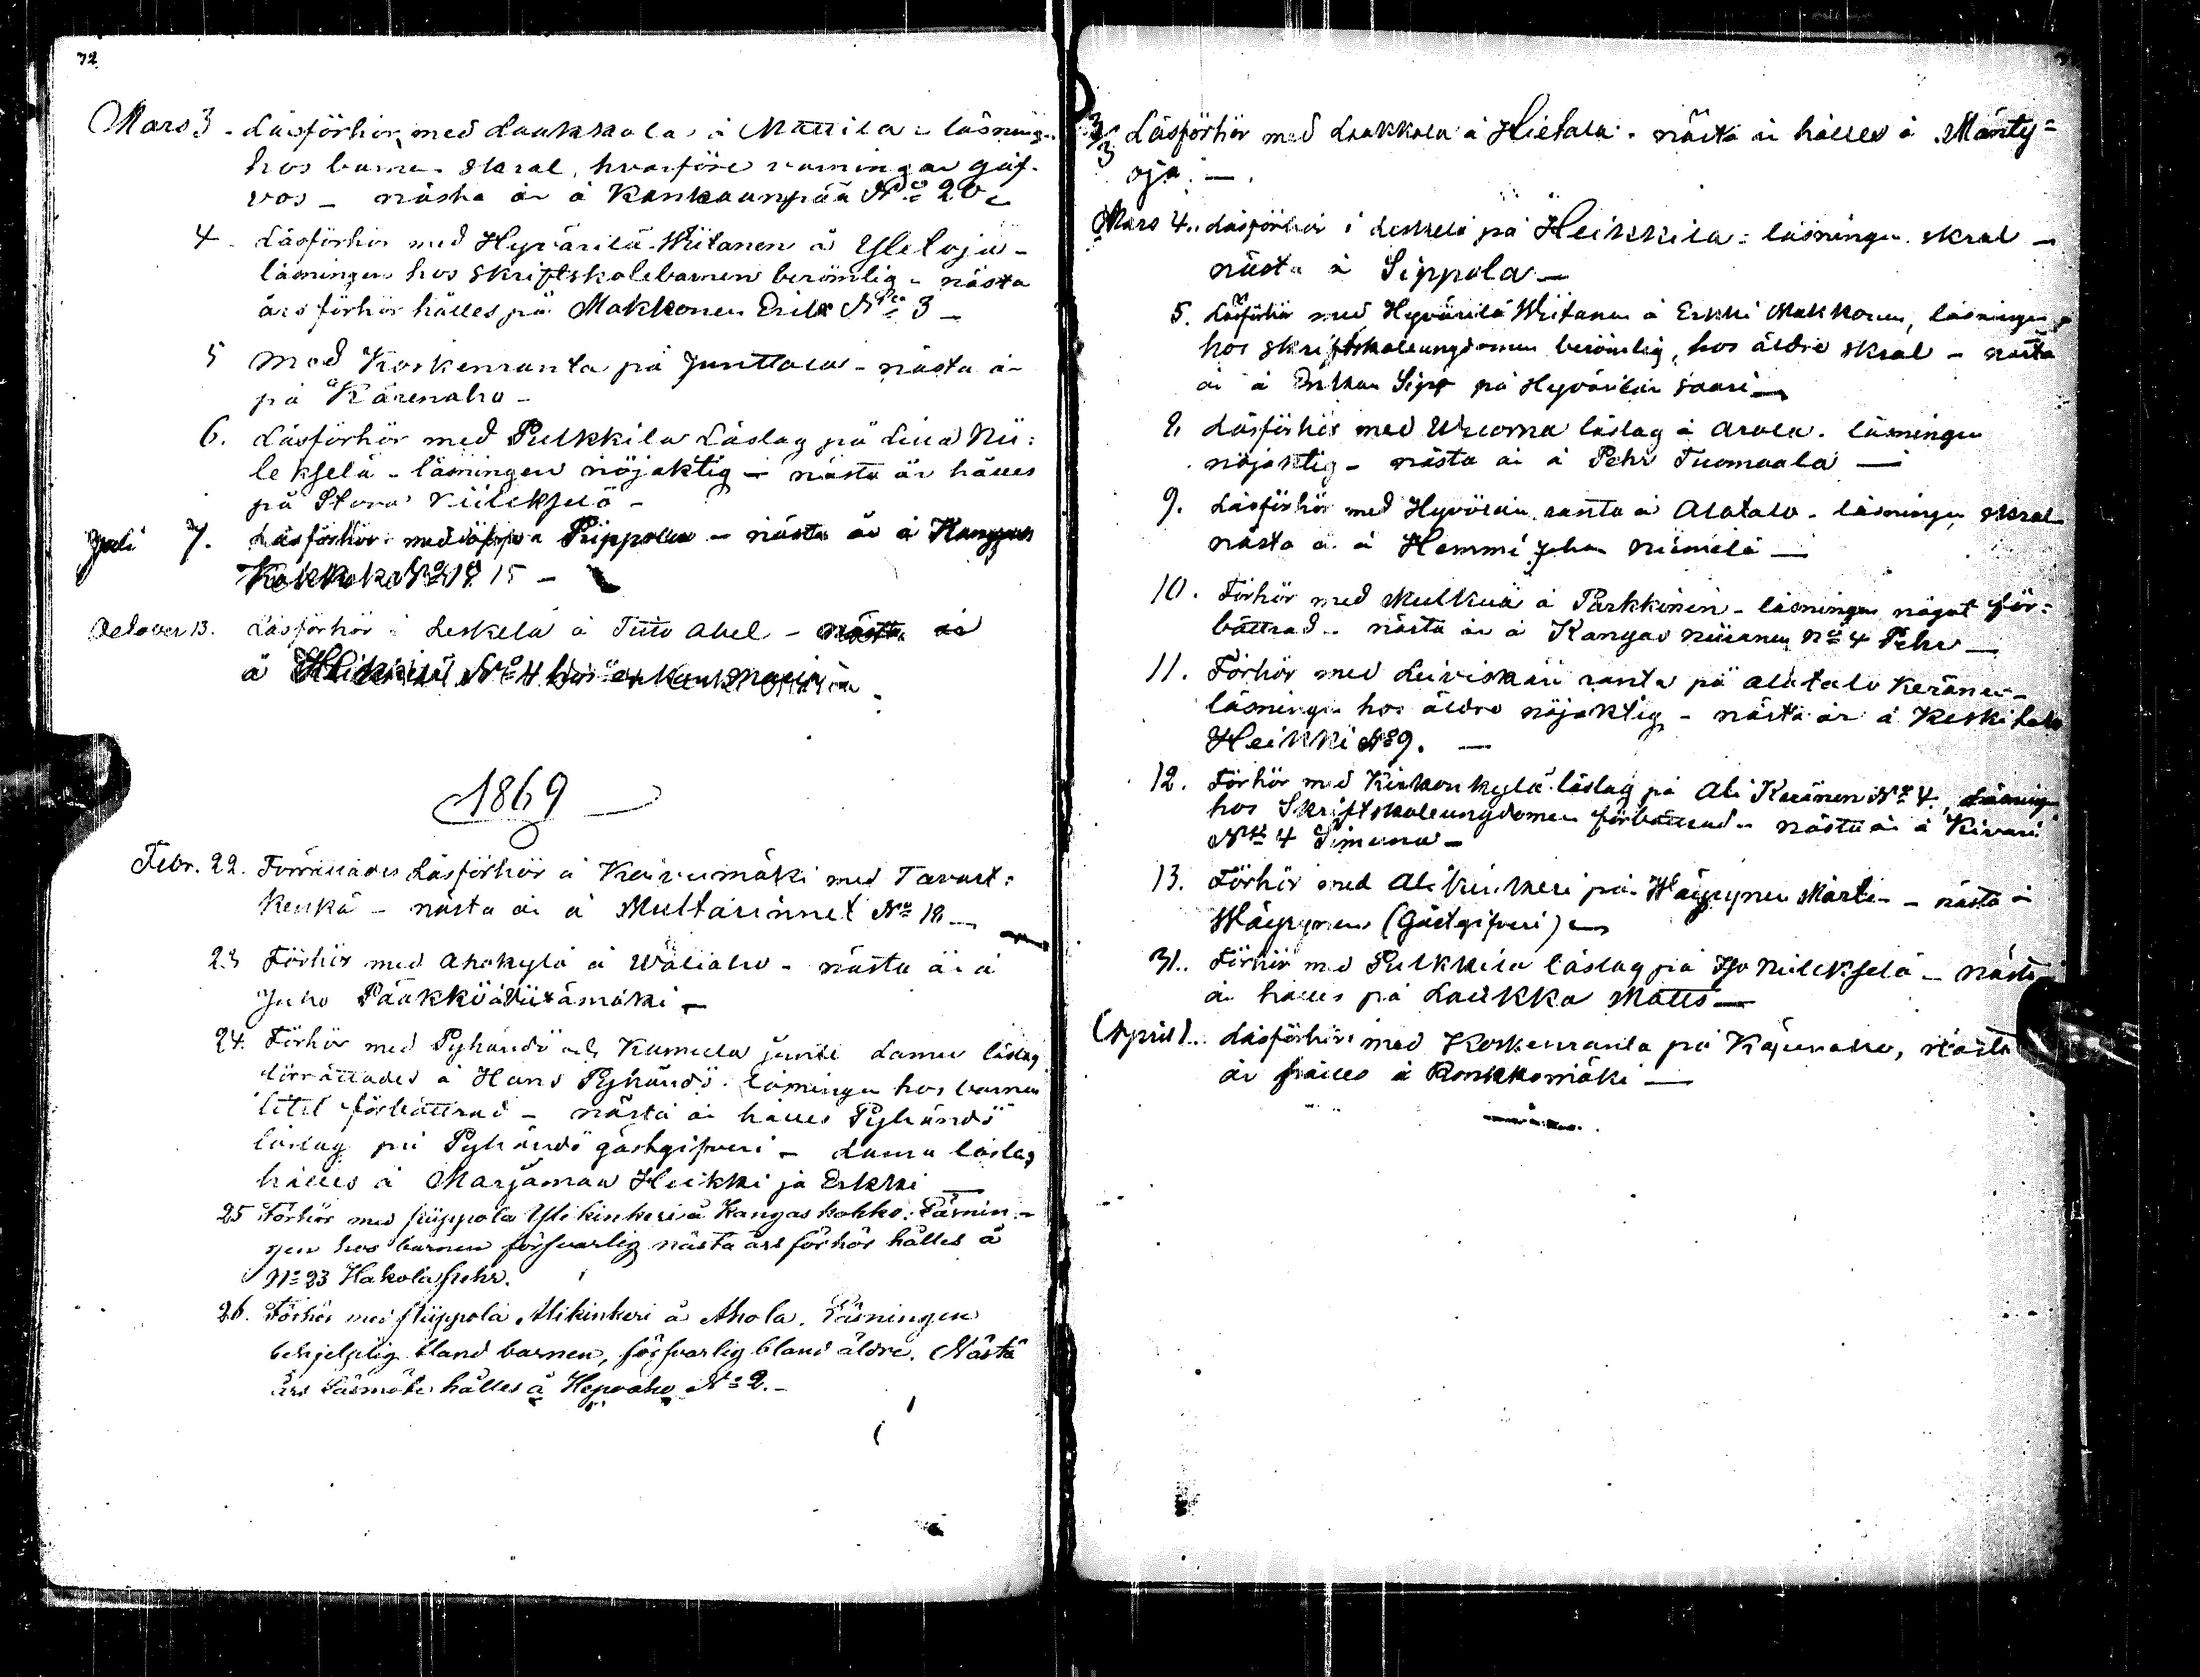 72
Mars 3. Läsförhör med Laakkola å Mattila - läsning-
hos barnen skral, hvarföre varningar gåf-
vos - nästa år å Kankaanpää No 20
4. Läsförhör med Hyvärilä-Wiitanen å Yletoja -
läsningen hos skriftskolebarnen berömlig - nästa
års förhör hålles på Makkonen Erik No 3 -
5 Med Koskenranta på Junttola - nästa år
på Kärenaho -
6. Läsförhör med Pulkkila Läslag på Lilla Nii-
lekselä - läsningen nöjaktig - nästa år hålles
på Stora Niilekselä -
Juli 7. Läsförhör med öfra Piippola - nästa år å Kangas
Kokko No 15 -
October 13. Läsförhör i Leskelä å Titto Abel - nästa år
å No 4
1869
Febr. 22. Förrättades Läsförhör å Kaivumäki med Tavast-
kenkä - nästa år å Multarinnet No 18 -
23 Förhör med Ahokylä å Wäliaho - nästa år å
Juho Pääkkö å Viitämäki -
24. Förhör med Pyhändö och Kamula jemte Lamu läslag
förrättades å Hans Pyhändö. läsningen hos barnen
litet förbättrad - nästa år hålles Pyhändö
läslag på Pyhändö gästgifveri - Lamu läslag
hålles å Marjamaa Heikki ja Erkki
25 Förhör med Piippola Ylikinkeri å Kangas kokko. Läsnin-
gen hos barnen försvarlig nästa års förhör hålles å
No 23 Hakola Pehr.
26. Förhör med Piippola Alikinkeri å Ahola. Läsningen
behjelplig bland barnen, försvarlig bland äldre. Nästa
års Läsmöte hålles å Hepoaho No 2. -
3/3 Läsförhör med Laakkola å Hietala. nästa år hålles å Mänty-
oja. -
Mars 4. Läsförhör i Leskelä på Heikkilä: läsningen skral -
nästa å Sippola -
5. Läsförhör med Hyvärilä Wiitanen å Erkki Makkonen, läsningen
hos skriftskoleungdomen berömlig, hos äldre skral - nästa
år å Erkkan Sipp på Hyvärilän saari -
8. Läsförhör med Uljua läslag å Arola. läsningen
nöjaktig - nästa år å Pehr Tuomaala -
9. Läsförhör med Hyvölän ranta å Alatalo - läsningen skral
nästa år å Hemmi Johan Niemelä -
10. Förhör med Mulkua å Parkkinen - läsningen något för-
bättrad - nästa år å Kangas Niiranen No 4 Pehr -
11. Förhör med Leiviskän ranta på Alatalo Keränen -
läsningen hos äldre nöjaktig - nästa år å Keskitalo
Heikki No 9. -
12. Förhör med Kirkonkylä läslag på Ali Keränen No 4, Läsningen
hos Skriftskoleungdomen förbättrad - nästa år å Kivari
No 4 Simuna -
13. Förhör med Alikinkeri på Wäyrynen Martin - nästa å
Wäyrynen (Gästgifveri) -
31. Förhör med Pulkkila läslag på Iso Niilekselä - nästa
år hålles på Laukka Matts -
April 1. Läsförhör med Koskenranta på Kärenaho, nästa
år hålles å Ronkkomäki -